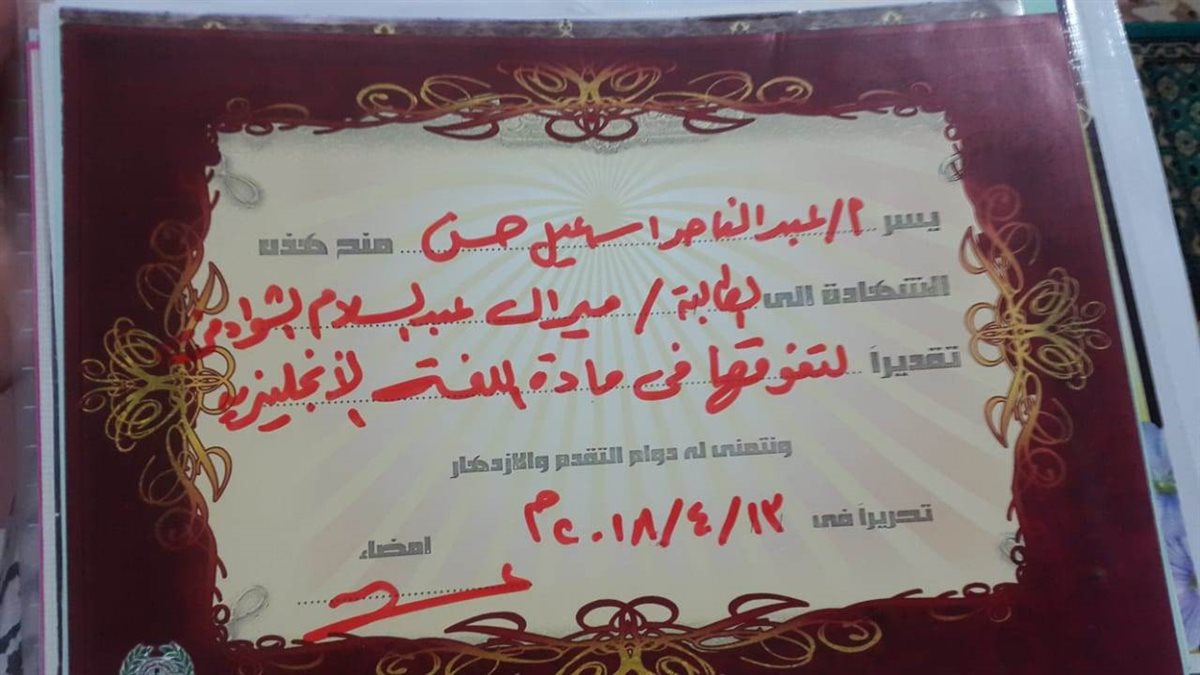 يسر م/ عبد الناصر اسماعيل حسن منح هذه
الشهادة الى الطالبة / ميرال عبد السلام الشوادفى
تقديراً لتفوقها فى مادة اللغة الإنجليزية
ونتمنى له دوام التقدم والازدهار
تحريراً فى ١٣/٤/٢٠١٨م
امضاء